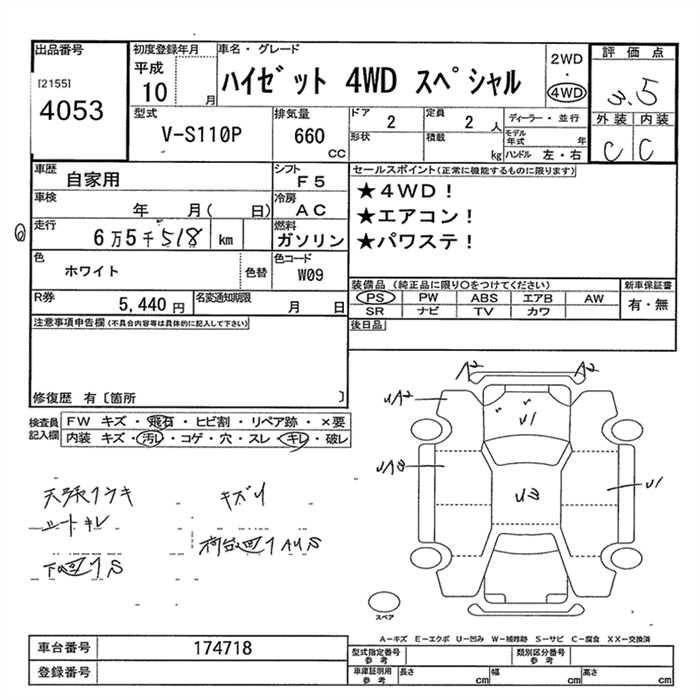 出品番号
[2155]
4053
初度登録年月
平成
10 月
車名・グレード
ハイゼット 4WD スペシャル
2WD
・
4WD
評価点
3.5
外装 内装
C C
型式
V-S110P
排気量
660
CC
ドア
2
定員
2 人
形状
積載
kg
ディーラー・並行
モデル年式 年
ハンドル 左・右
車歴
自家用
シフト
F5
車検
年 月( 日)
冷房
AC
走行
6万5千518 km
燃料
ガソリン
色
ホワイト
色替
色コード
W09
R券
5,440 円
名変通知期限
月 日
セールスポイント(正常に機能するものに限ります)
★4WD!
★エアコン!
★パワステ!
装備品 (純正品に限り○をつけてください)
PS PW ABS エアB AW
SR ナビ TV カワ
新車保証書
有・無
後日品
注意事項申告欄(不具合内容等は具体的に記入して下さい)
修復歴 有〔箇所 〕
検査員記入欄
FW キズ・飛石・ヒビ割・リペア跡・×要
内装 キズ・汚レ・コゲ・穴・スレ・キレ・破レ
キズリ
シートキレ
A2 A2
UA2
U1
UA3
U3
U1
スペア
A-キズ E-エクボ U-凹み W-補修跡 S-サビ C-腐食 XX-交換済
車台番号
174718
登録番号
型式指定番号 参考
類別区分番号 参考
車庫証明用 参考
長さ cm
幅 cm
高さ cm